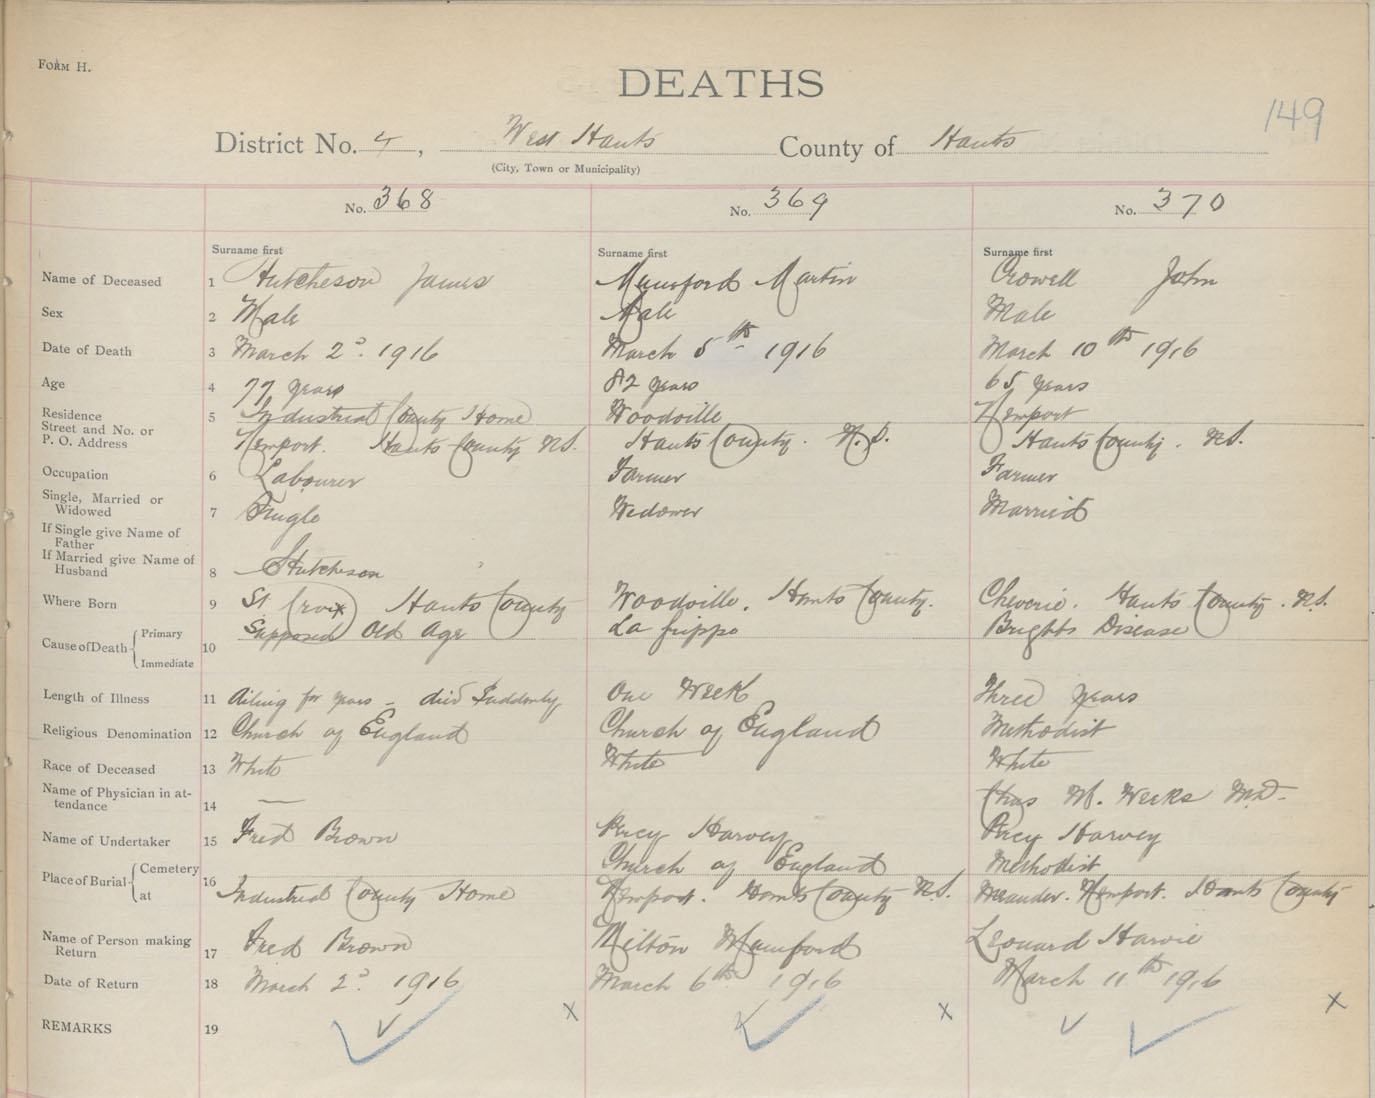 Form H.
DEATHS
149
District No. 4, West Hants County of Hants
(City, Town or Municipality)
No. 368 No. 369 No. 370
Surname first Surname first Surname first
Name of Deceased 1 Hutcheson James Mumford Martin Crowell John
Sex 2 Male Male Male
Date of Death 3 March 2d. 1916 March 5th 1916 March 10th 1916
Age 4 77 years 82 years 65 years
Residence Street and No. or P. O. Address 5 Industrial County Home Woodville Newport
Newport. Hants County NS. Hants County. N.S. Hants County. NS.
Occupation 6 Labourer Farmer Farmer
Single, Married or Widowed 7 Single Widower Married
If Single give Name of Father
If Married give Name of Husband 8 Hutcheson
Where Born 9 St Croix Hants County Woodville. Hants County. Cheverie. Hants County. NS.
Cause of Death Primary Immediate 10 Supposed Old Age La Grippe Brights Disease
Length of Illness 11 Ailing for years - died Suddenly One Week Three years
Religious Denomination 12 Church of England Church of England Methodist
Race of Deceased 13 White White White
Name of Physician in attendance 14 — Chas W. Weeks M.D-
Name of Undertaker 15 Fred Brown Percy Harvey Percy Harvey
Place of Burial Cemetery Church of England Methodist
at 16 Industrial County Home Newport. Hants County N.S. Meander. Newport. Hants County
Name of Person making Return 17 Fred Brown Milton Mumford Leonard Harvie
Date of Return 18 March 2d. 1916 March 6th 1916 March 11th 1916
REMARKS 19 x x x